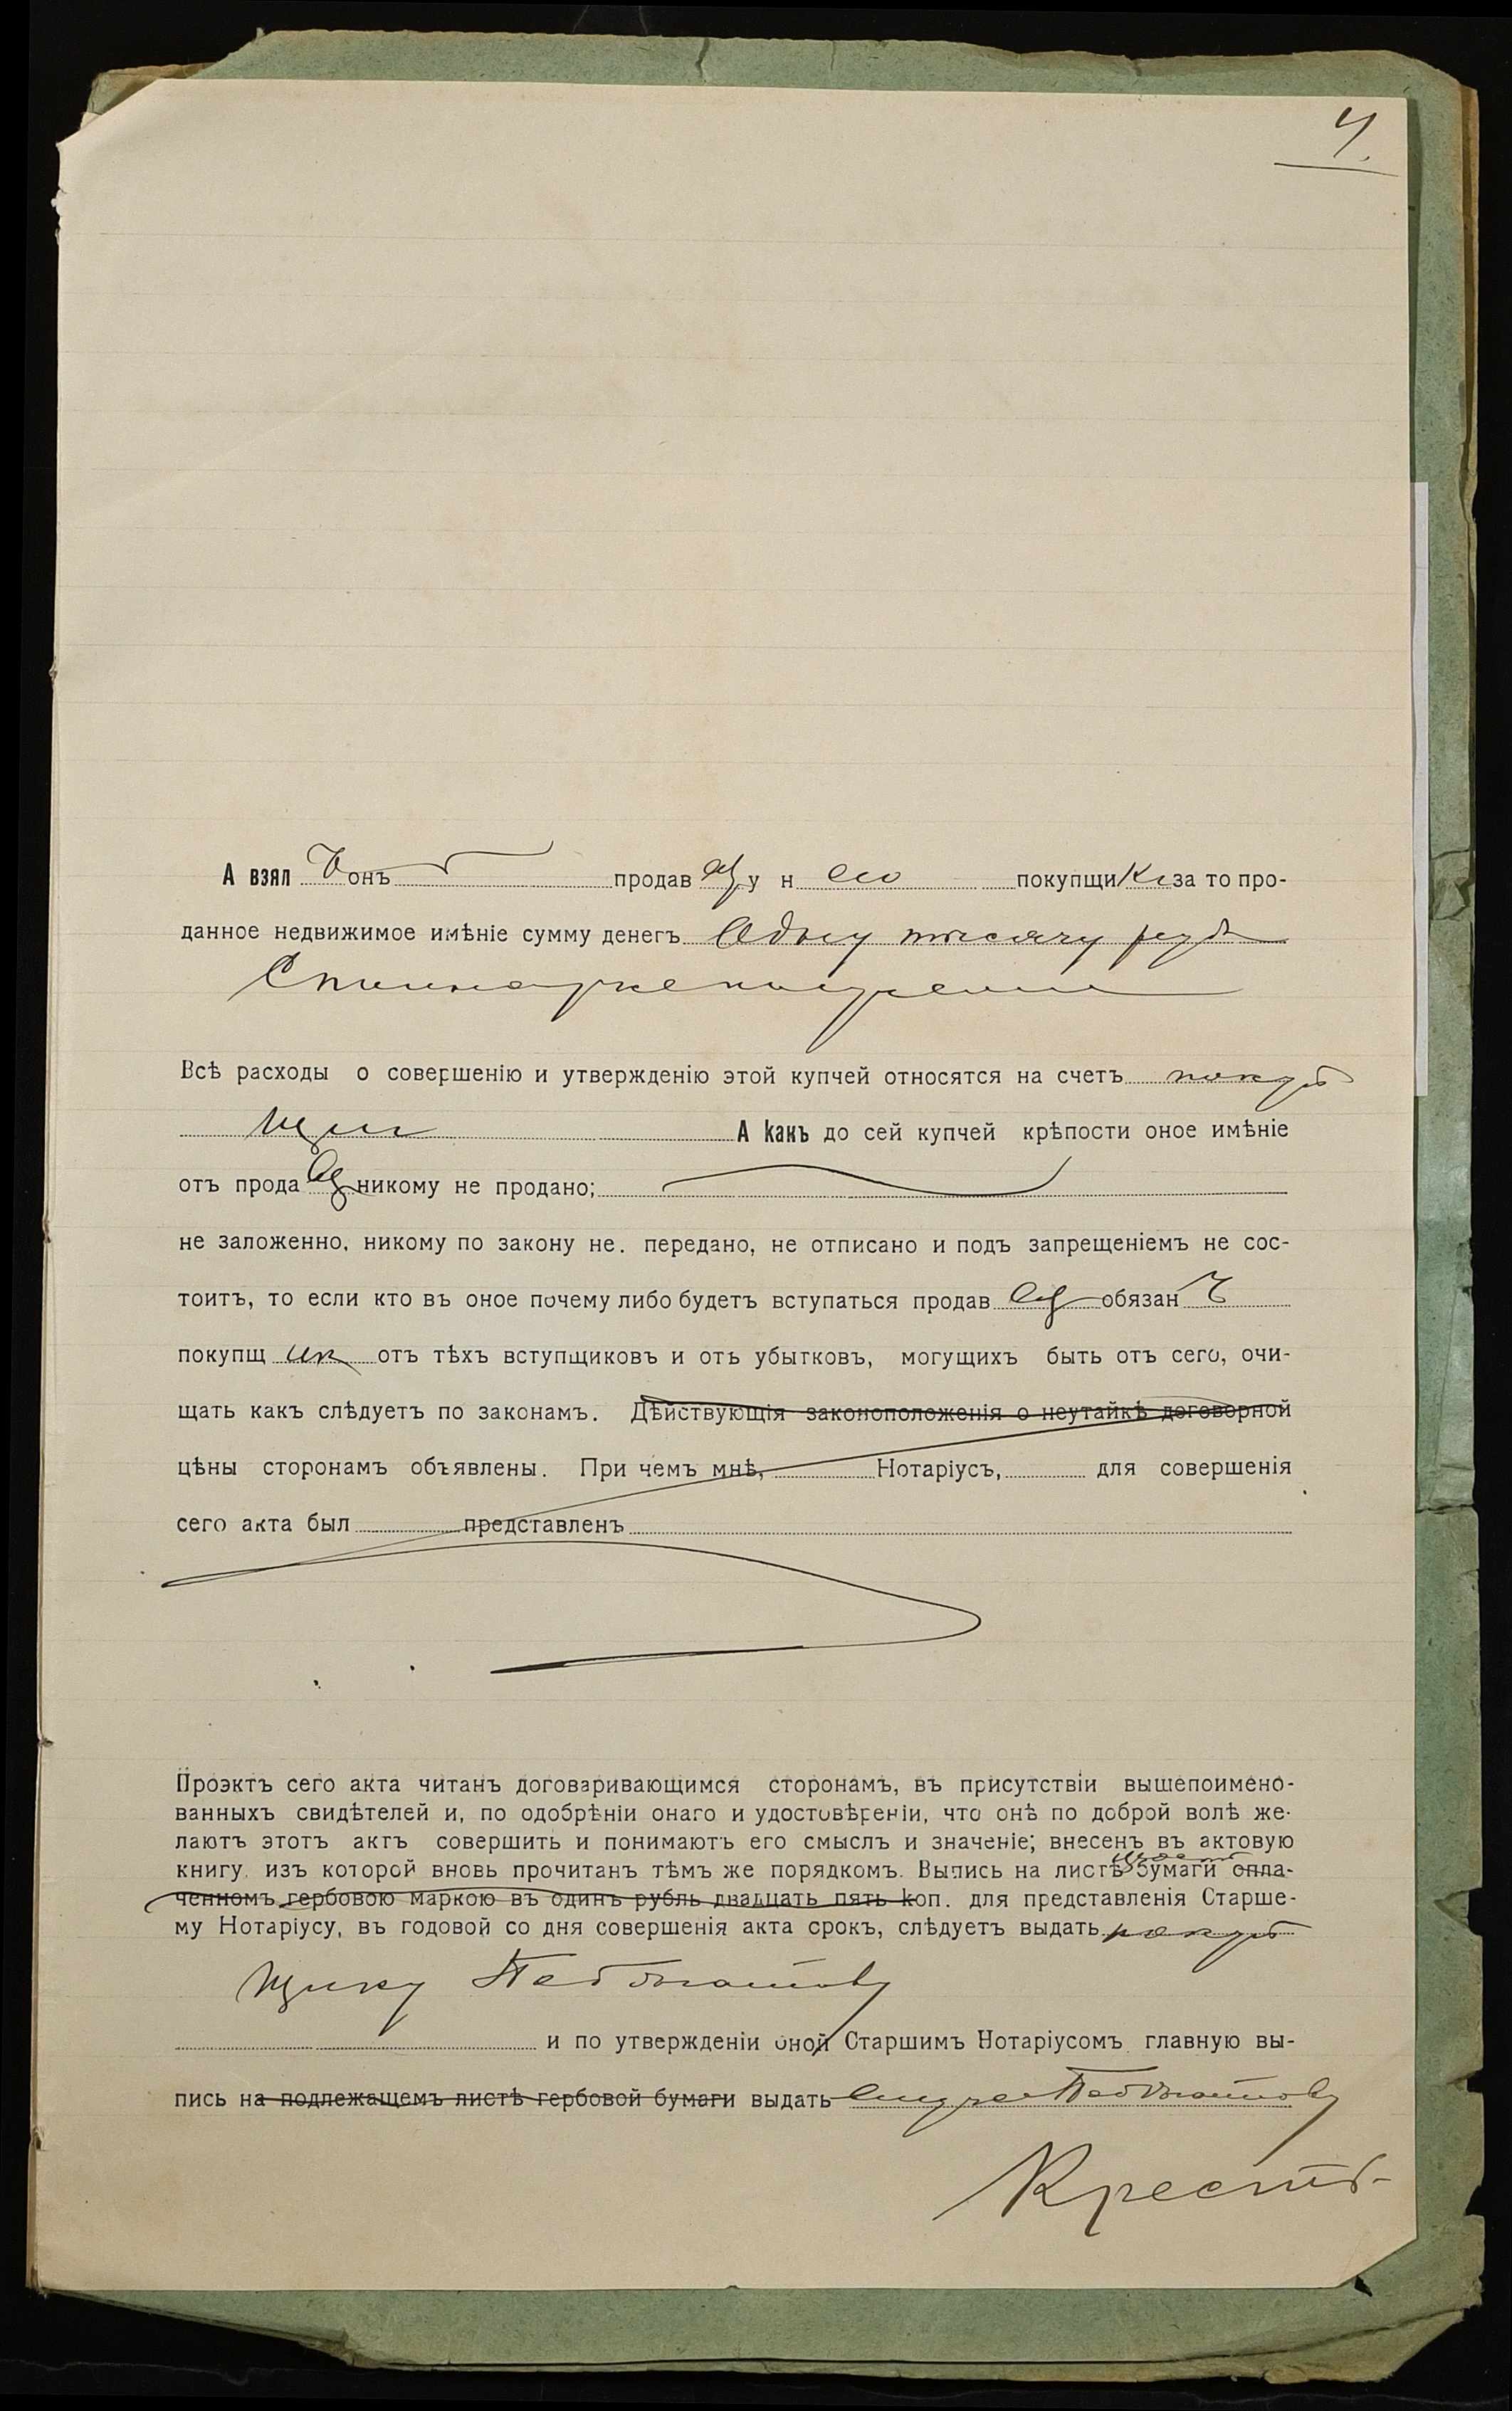 4.
А взял ъ онъ продав ец у н его покупщи ка за то про-
данное недвижимое имѣніе сумму денегъ Одну тысячу руб
Всѣ расходы о совершенію и утвержденію этой купчей относятся на счетъ покуп
щика А какъ до сей купчей крѣпости оное имѣніе
отъ прода вц никому не продано;
не заложенно, никому по закону не. передано, не отписано и подъ запрещеніемъ не сос-
тоитъ, то если кто въ оное почему либо будетъ вступаться продав ец обязан ъ
покупщ ик отъ тѣхъ вступщиковъ и отъ убытковъ, могущихъ быть отъ сего, очи-
щать какъ слѣдуетъ по законамъ. Дѣйствующія законоположенія о неутайкѣ договорной
цѣны сторонамъ объявлены. При чемъ мнѣ, Нотаріусъ, для совершенія
сего акта был представленъ
Проэктъ сего акта читанъ договаривающимся сторонамъ, въ присутствіи вышепоимено-
ванныхъ свидѣтелей и, по одобрѣніи онаго и удостовѣреніи, что онѣ по доброй волѣ же-
лаютъ этотъ актъ совершить и понимаютъ его смыслъ и значеніе; внесенъ въ актовую
книгу, изъ которой вновь прочитанъ тѣмъ же порядкомъ. Выпись на листѣ бумаги опла-
ченномъ гербовою маркою въ одинъ рубль двадцать пять коп. для представленія Старше-
му Нотаріусу, въ годовой со дня совершенія акта срокъ, слѣдуетъ выдать покуп
щику
и по утвержденіи оной Старшимъ Нотаріусомъ главную вы-
пись на подлежащемъ листѣ гербовой бумаги выдать ему же
Крестъ-